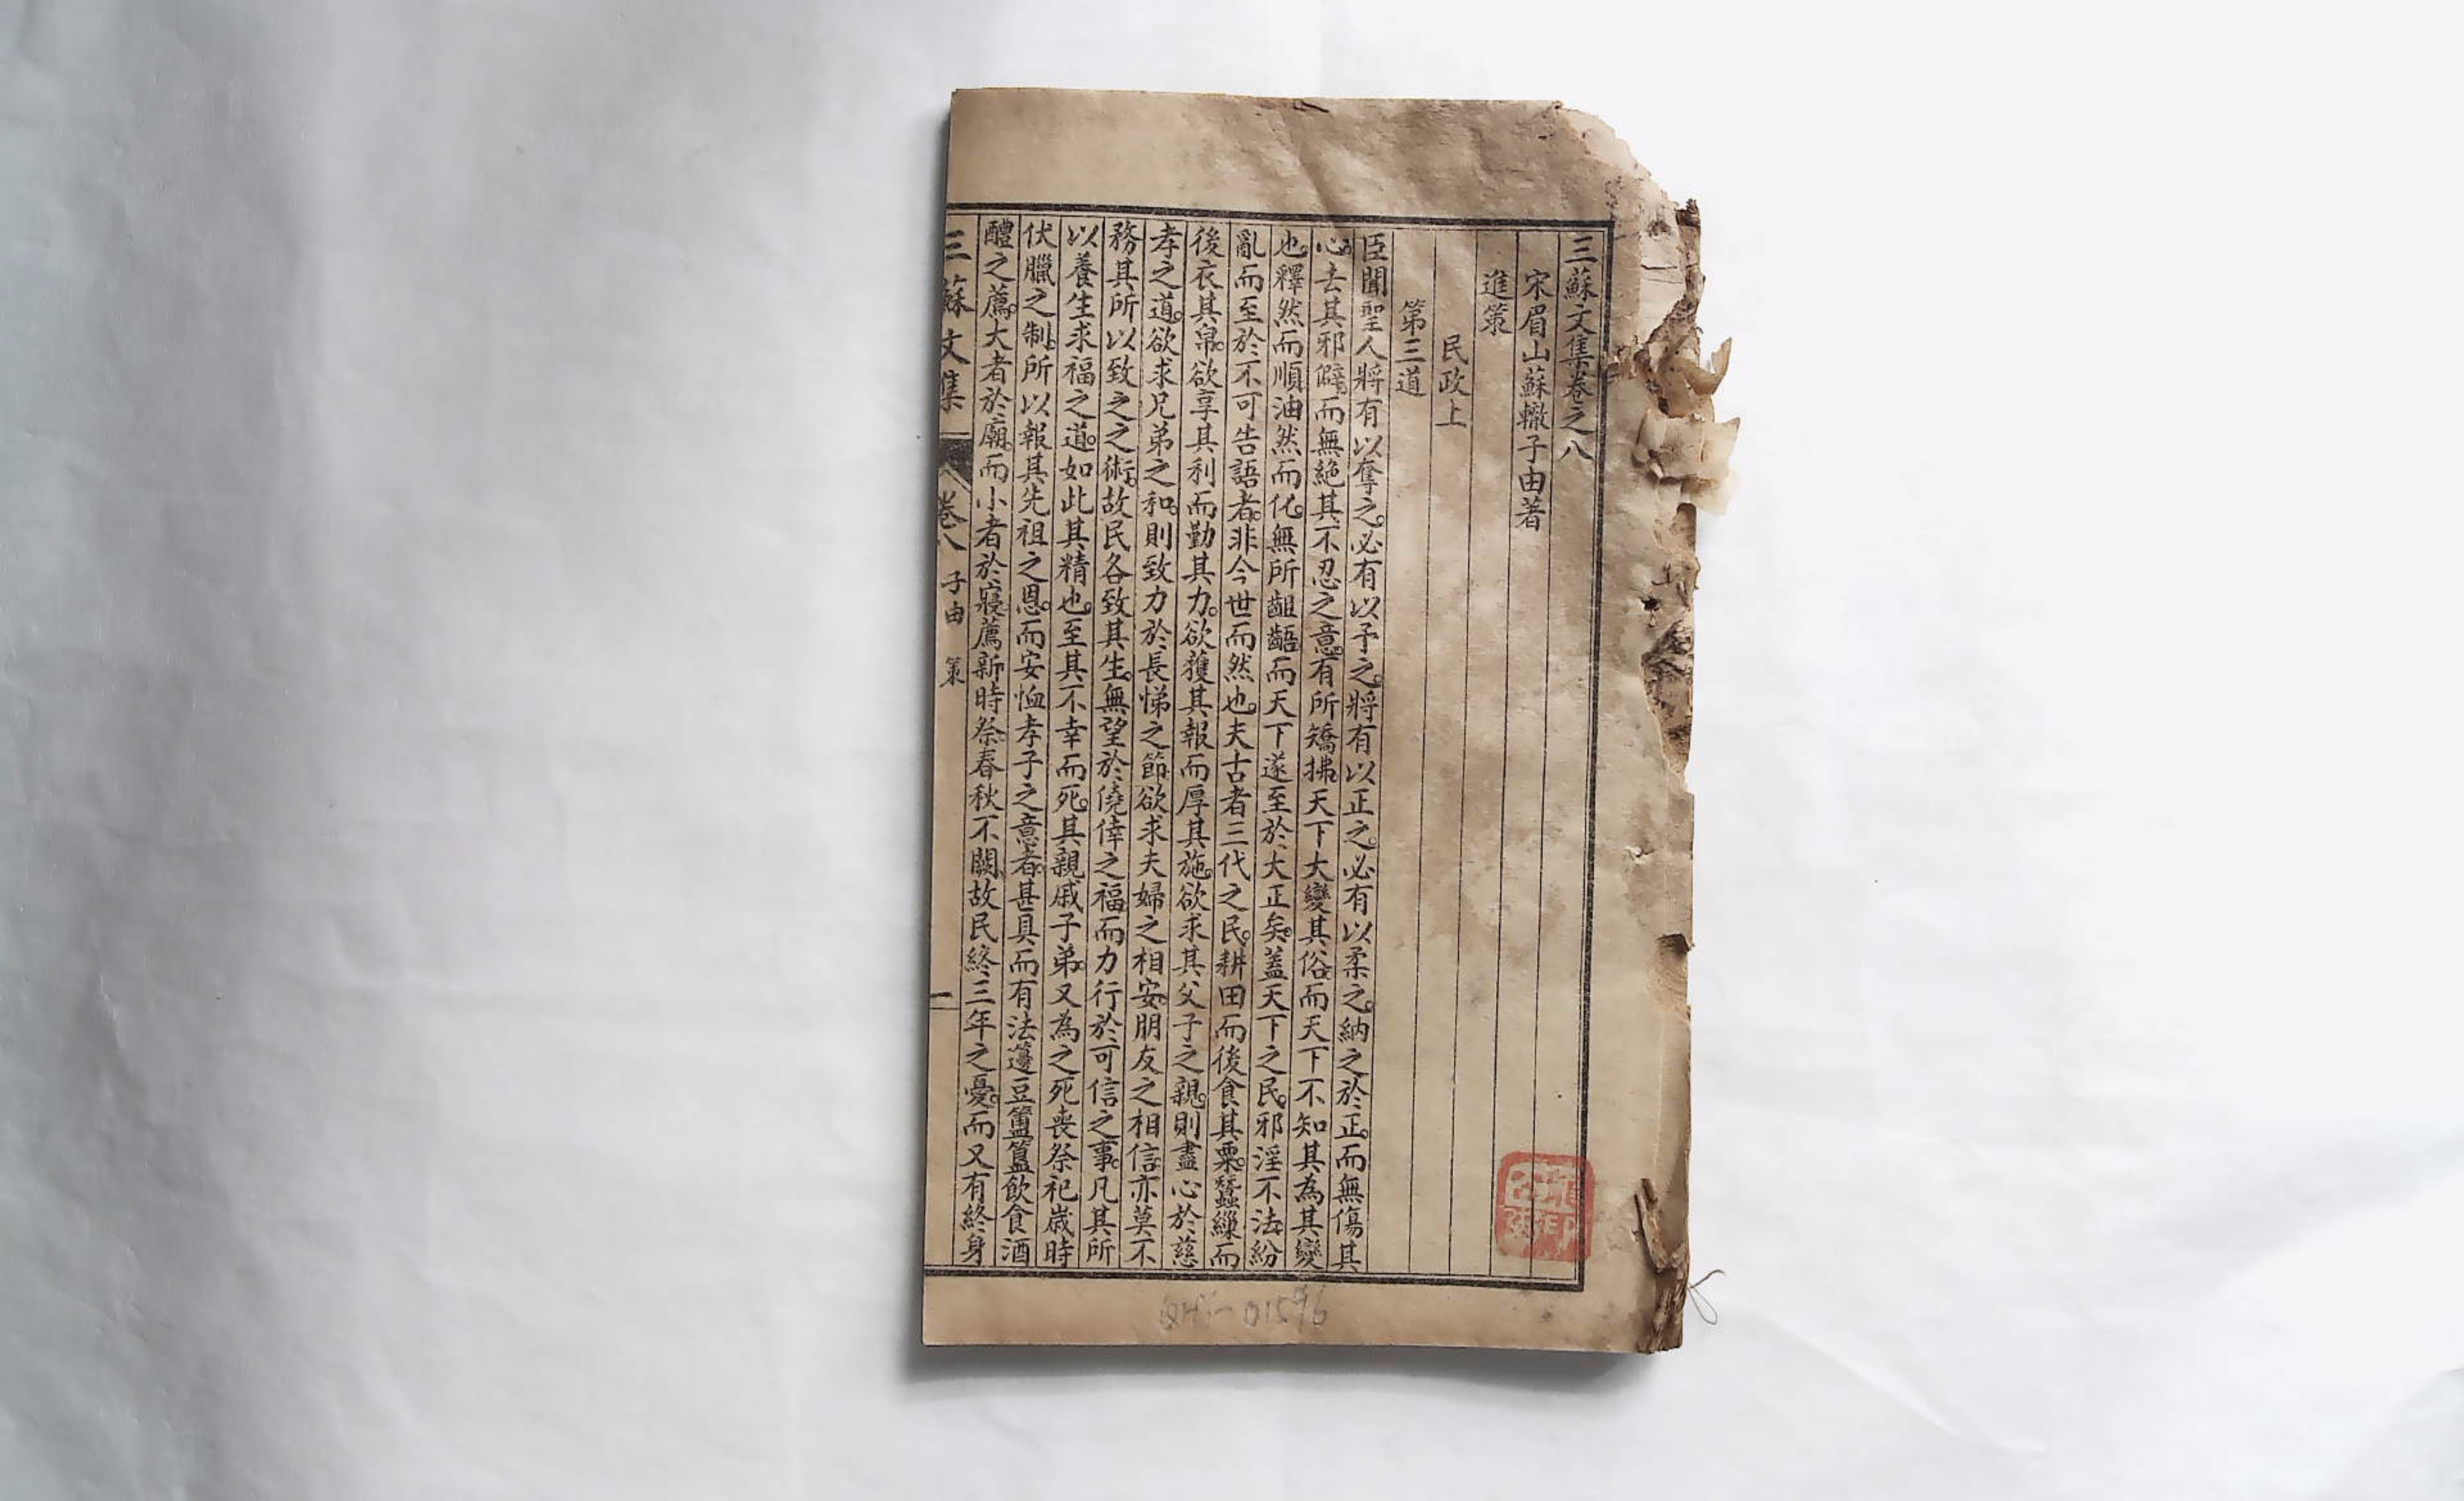 三蘇文集卷之八
宋眉山蘇轍子由著
進策
民政上
第三道
臣聞聖人將有以奪之。必有以予之。將有以正之。必有以柔之。納之於正。而無傷其
心。去其邪僻。而無絕其不忍之意。有所矯拂天下。大變其俗。而天下不知其為其變
也。釋然而順油然而化。無所齟齬。而天下遂至於大正矣。蓋天下之民。邪淫不法。紛
亂而至於不可告語者。非今世而然也。夫古者三代之民。耕田而後食其粟。蠶繅而
後衣其帛。欲享其利。而勤其力。欲獲其報。而厚其施。欲求其父子之親。則盡心於慈
孝之道。欲求兄弟之和。則致力於長悌之節。欲求夫婦之相安。朋友之相信。亦莫不
務其所以致之之術。故民各致其生。無望於僥倖之福。而力行於可信之事。凡其所
以養生求福之道。如此其精也。至其不幸而死。其親戚子弟。又為之死喪祭祀歲時
伏臘之制。所以報其先祖之恩。而安恤孝子之意者。甚具而有法。籩豆簠簋飲食酒
醴之薦。大者於廟。而小者於寢。薦新時祭。春秋不闕。故民終三年之憂。而又有終身
三蘇文集 卷八 子由 策 一